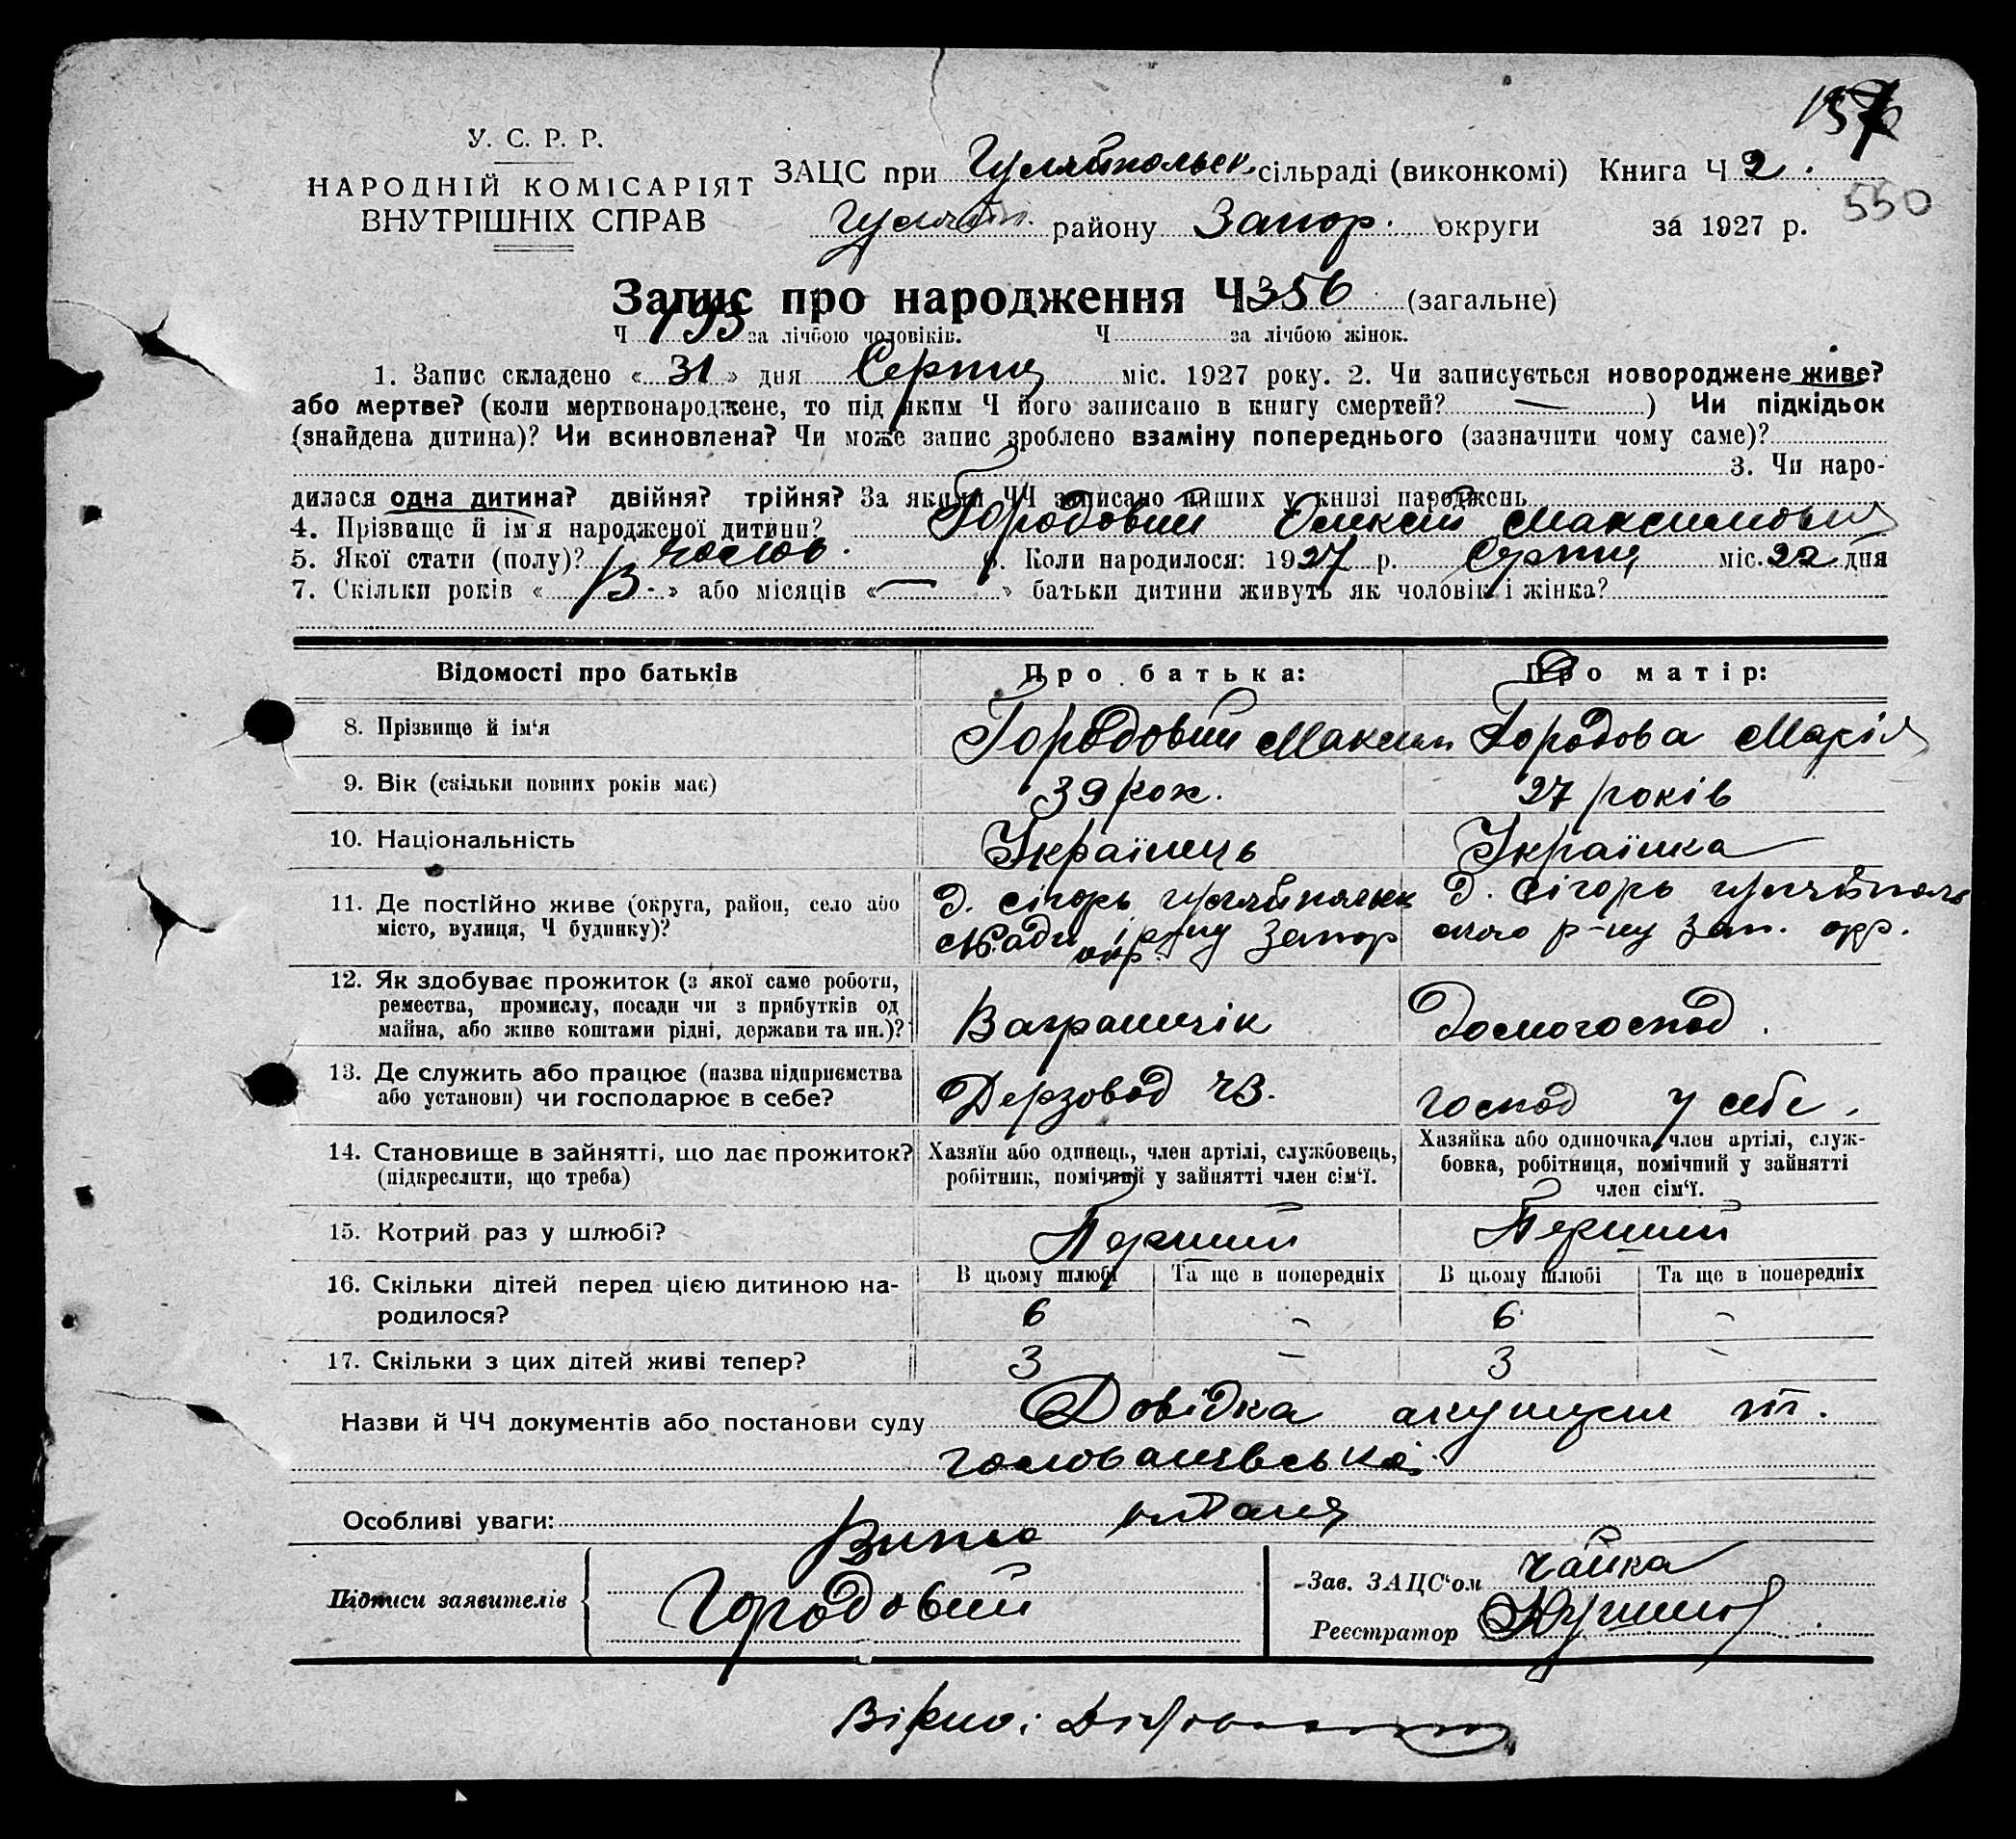 157
У. С. Р. Р.
НАРОДНІЙ КОМІСАРІЯТ
ВНУТРІШНІХ СПРАВ
ЗАЦС при Гуляйпольск. сільраді (виконкомі) Книга Ч 2.
550
Гуляйп. району Запор. округи за 1927 р.
Запис про народження Ч 356 (загальне)
Ч 193 за лічбою чоловіків. Ч за лічбою жінок.
1. Запис складено « 31 » дня Серпня міс. 1927 року. 2. Чи записується новороджене живе?
або мертве? (коли мертвонароджене, то під яким Ч його записано в книгу смертей? — ) Чи підкідьок
(знайдена дитина)? Чи всиновлена? Чи може запис зроблено взаміну попереднього (зазначити чому саме)?
3. Чи наро-
дилася одна дитина? двійня? трійня? За якими ЧЧ записано інших у книзі народжень
4. Прізвище й ім'я народженої дитини? Городовий Олексій Максимович
5. Якої стати (полу)? Чолов. 6. Коли народилося: 1927 р. Серпня міс. 22 дня
7. Скільки років « 13 » або місяців « — » батьки дитини живуть як чоловік і жінка?
Відомості про батьків Про батька: Про матір:
8. Прізвище й ім'я Городовий Максим Городова Марія
9. Вік (скільки повних років має) 39 рок. 27 років
10. Національність Українець Українка
11. Де постійно живе (округа, район, село або Д. Сігорь Гуляйпольск Д. Сігорь Гуляйполь
місто, вулиця, Ч будинку)? р-ну Запор ского р-ну Зап. окр.
окр.
12. Як здобуває прожиток (з якої саме роботи,
ремества, промислу, посади чи з прибутків од
майна, або живе коштами рідні, держави та ин.)? Вагранчік Домогоспод.
13. Де служить або працює (назва підприємства
або установи) чи господарює в себе? Держзавод Господ у себе.
14. Становище в зайнятті, що дає прожиток? Хазяїн або одинець, член артілі, службовець, Хазяйка або одиночка, член артілі, служ-
(підкреслити, що треба) робітник, помічний у зайнятті член сім'ї. бовка, робітниця, помічний у зайнятті
член сім'ї.
15. Котрий раз у шлюбі? Перший Перший
16. Скільки дітей перед цією дитиною на- В цьому шлюбі Та ще в попередніх В цьому шлюбі Та ще в попередніх
родилося? 6 - 6 -
17. Скільки з цих дітей живі тепер? 3 - 3 -
Назви й ЧЧ документів або постанови суду Довідка акушерки т.
Особливі уваги:
Підписи заявителів Городовий
Зав. ЗАЦС'ом Чайка
Реєстратор
Вірно: